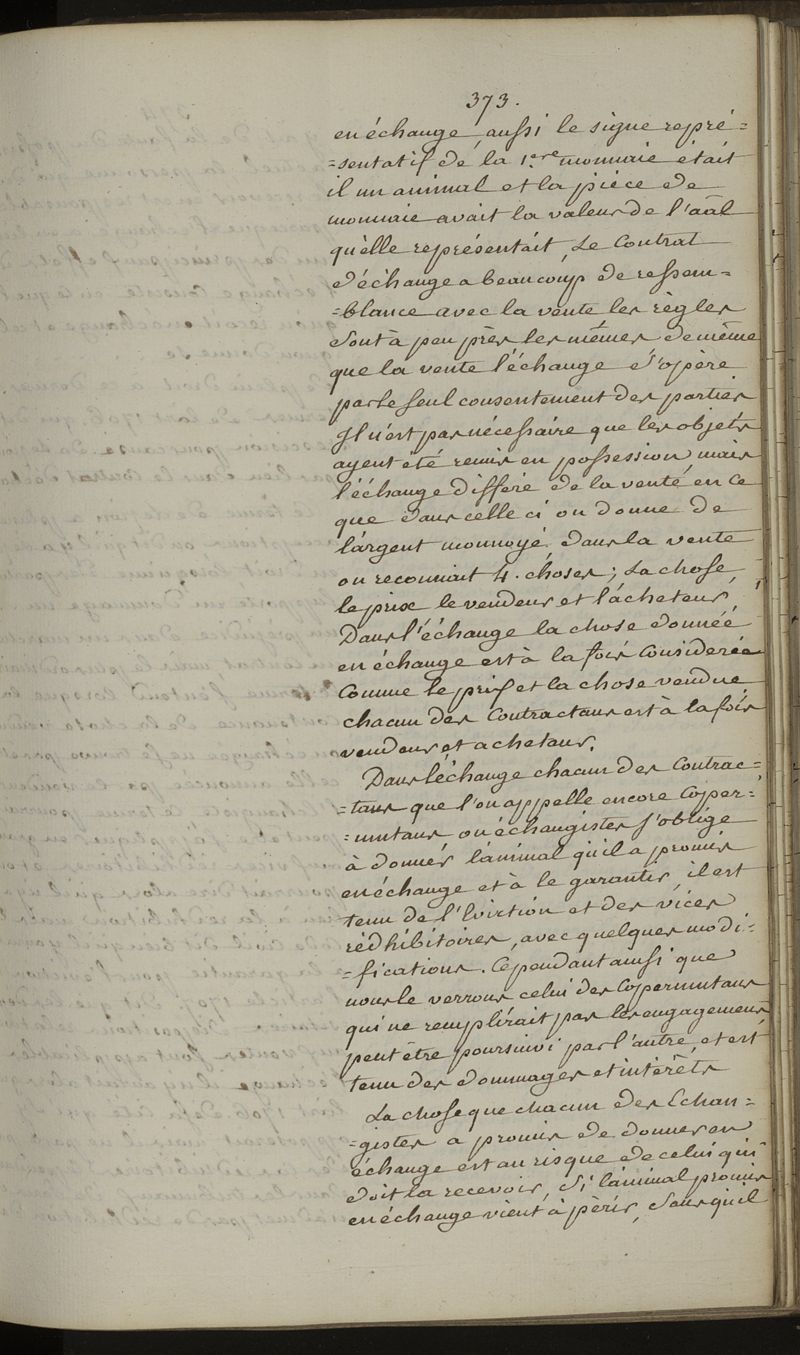 373.
en échange, aussi le signe repré=
=sentatif de la 1.ere monnaie était
il un animal et la pièce de
monnaie avait la valeur de l'aâl
qu'elle représentait, Le Contrat
d'échange a beaucoup de ressem=
=blance avec la vente les règles
sont à peu près les mêmes de même
que la vente l'échange s'opère
par le seul consentement des parties
Il n'est pas nécessaire que les objets
ayent été remis en possession, mais
l'échange differe de la vente en ce
que dans celle ci on donne de
l'argent monnoyé. dans la vente
on reconnait 4. choses; La chose,
le prix le vendeur et l'acheteur,
Dans l'échange la chose donnée
en échange est à la fois Considerée
Comme le prix et la chose vendue,
chacun des Contractans est à la fois
vendeur et acheteur.
Dans l'échange chacun des Contrac=
=tans que l'on appelle encore Copper=
=mutans ou échangistes s'oblige
à donner l'animal qu'il a promis
en échange et à le garantir, il est
tenu de l'Eviction et des vices
rédhibitoires, avec quelques modi=
=fications. Cependant ainsi que
nous le verrons celui des Coppermutans
qui ne remplirait pas les engagemens
peut être poursuivi par l'autre, et est
tenu des dommages et intérêts
La chose que chacun des Echan=
=gistes a promis de donner en
échange est au risque de celui qui
doit la recevoir, Si l'animal promis
en échange vient à périr, sans qu'il